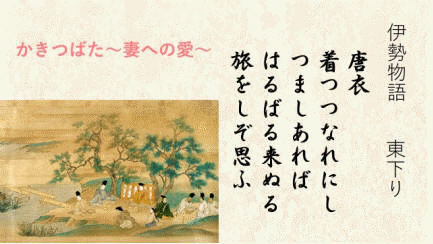 伊勢物語　東下り
唐衣
着つつなれにし
つましあれば
はるばる来ぬる
旅をしぞ思ふ
かきつばた～妻への愛～